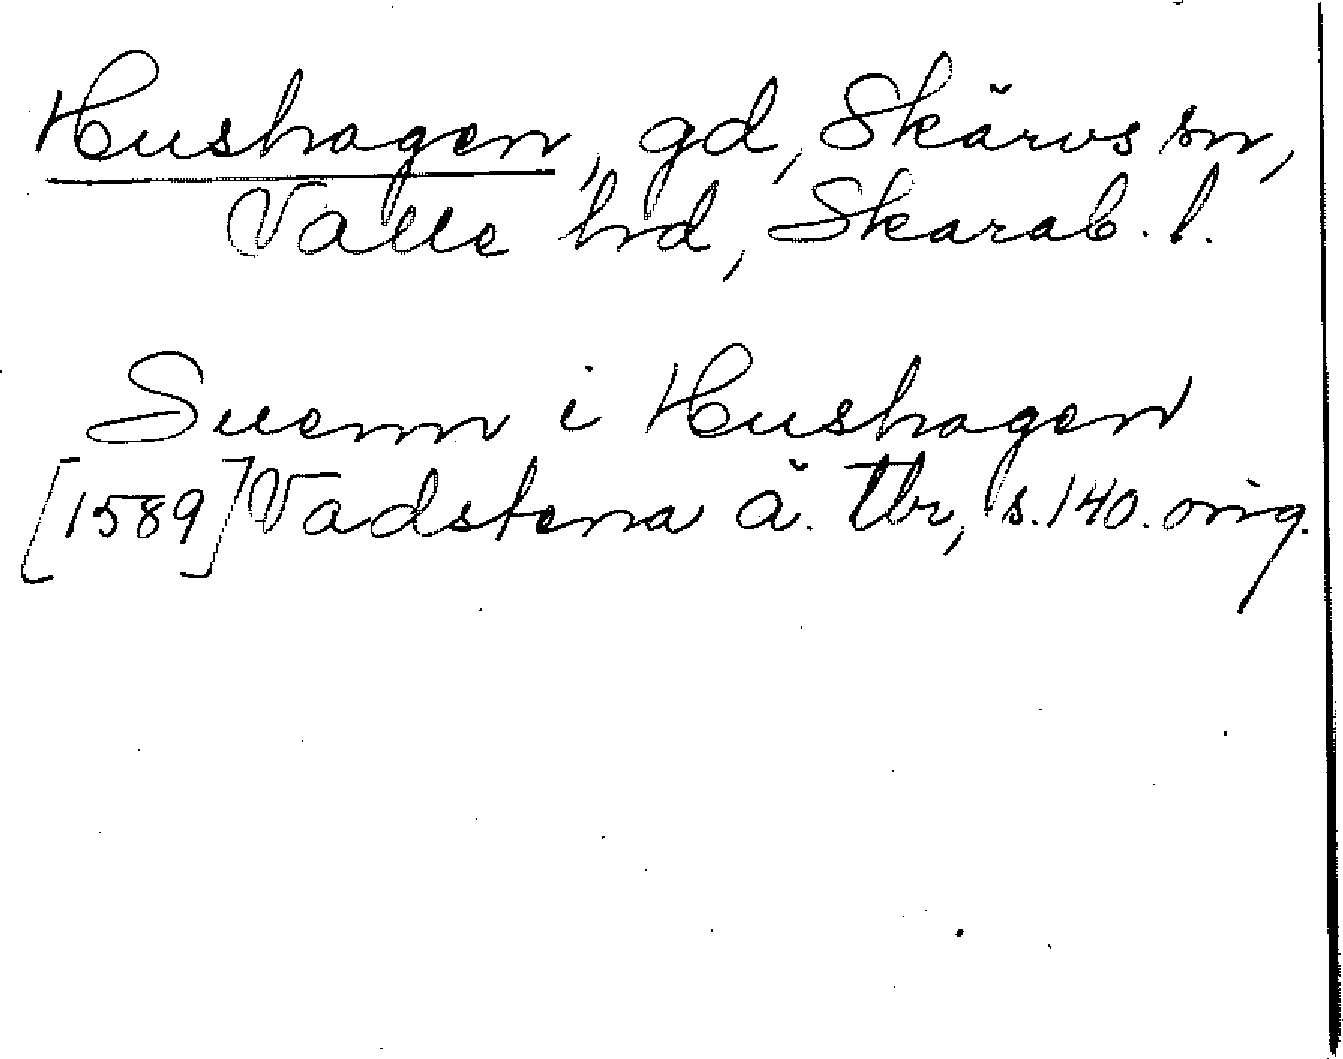 Hushagen, gd, Skärvs sn,
Valle hd, Skarab. l.
Suenn i Hushagen
[1589] Vadstena ä. tbr, s. 140. orig.